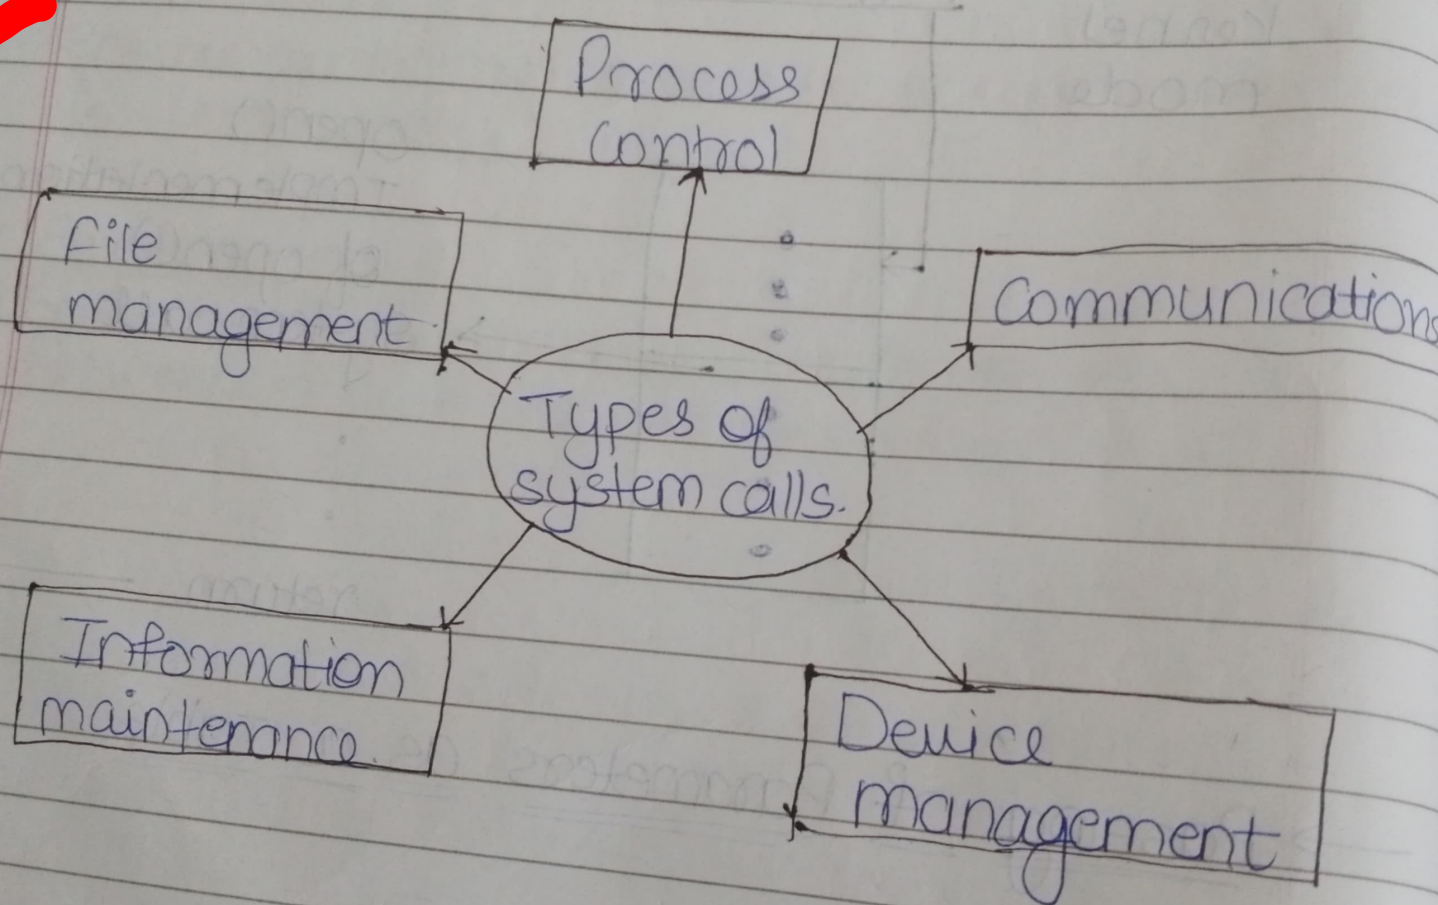 Process
control
File
management
Communications
Types of
system calls.
Information
maintenance.
Device
management